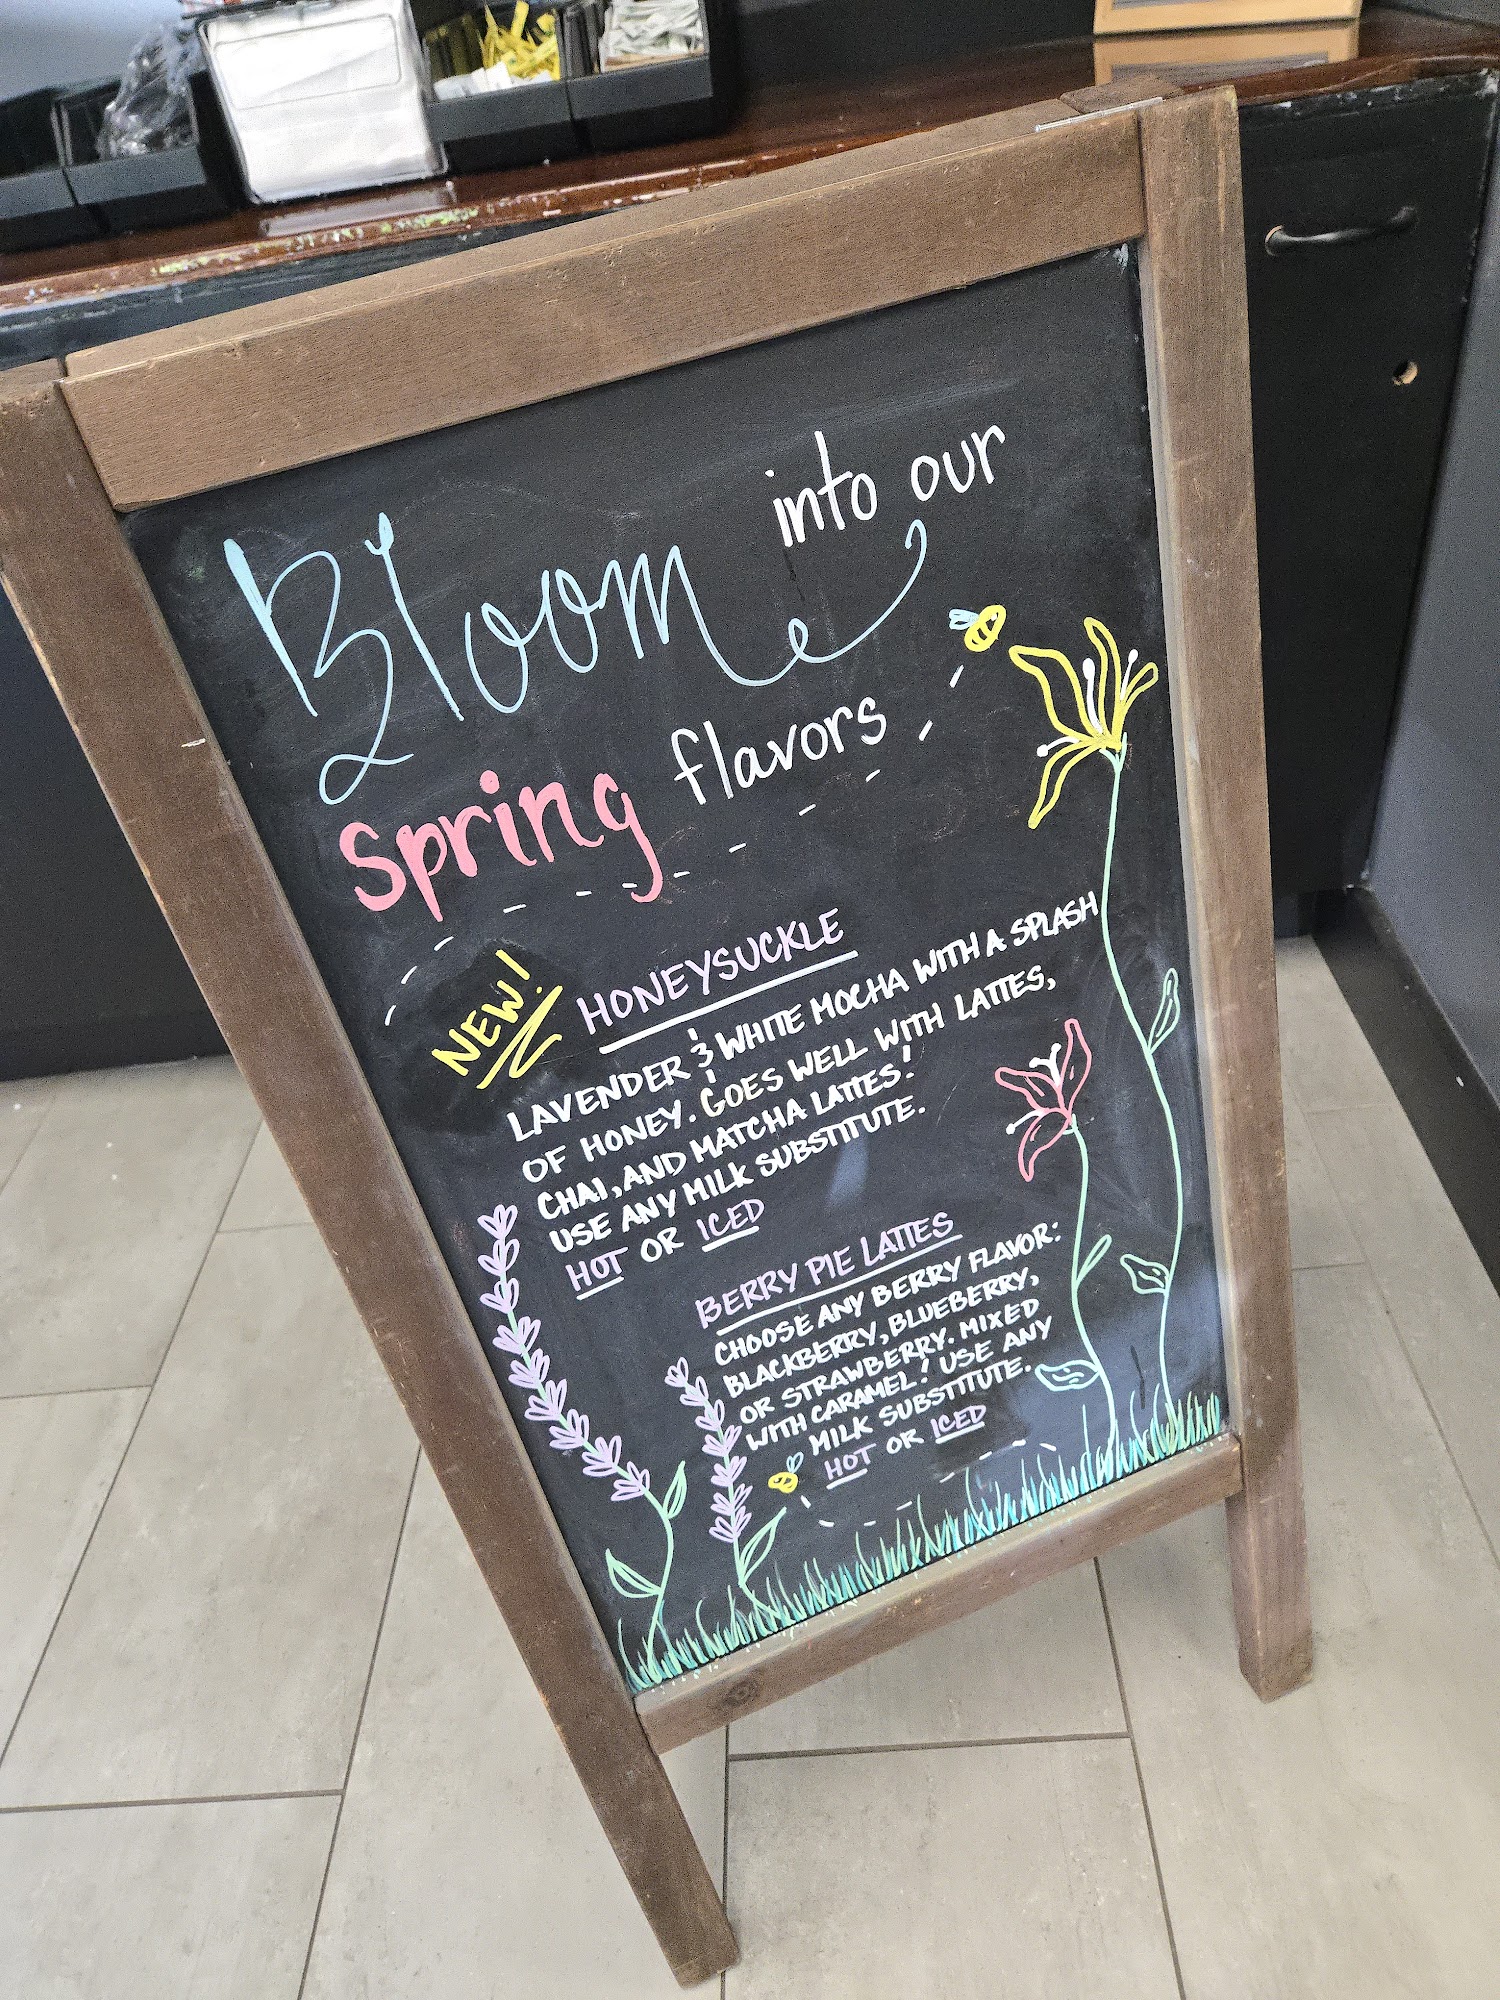 Bloom into our
spring flavors
NEW! HONEYSUCKLE
LAVENDER & WHITE MOCHA WITH A SPLASH
OF HONEY. GOES WELL WITH LATTES,
CHAI, AND MATCHA LATTES!
USE ANY MILK SUBSTITUTE.
HOT OR ICED
BERRY PIE LATTES
CHOOSE ANY BERRY FLAVOR:
BLACKBERRY, BLUEBERRY,
OR STRAWBERRY. MIXED
WITH CARAMEL! USE ANY
MILK SUBSTITUTE.
HOT OR ICED